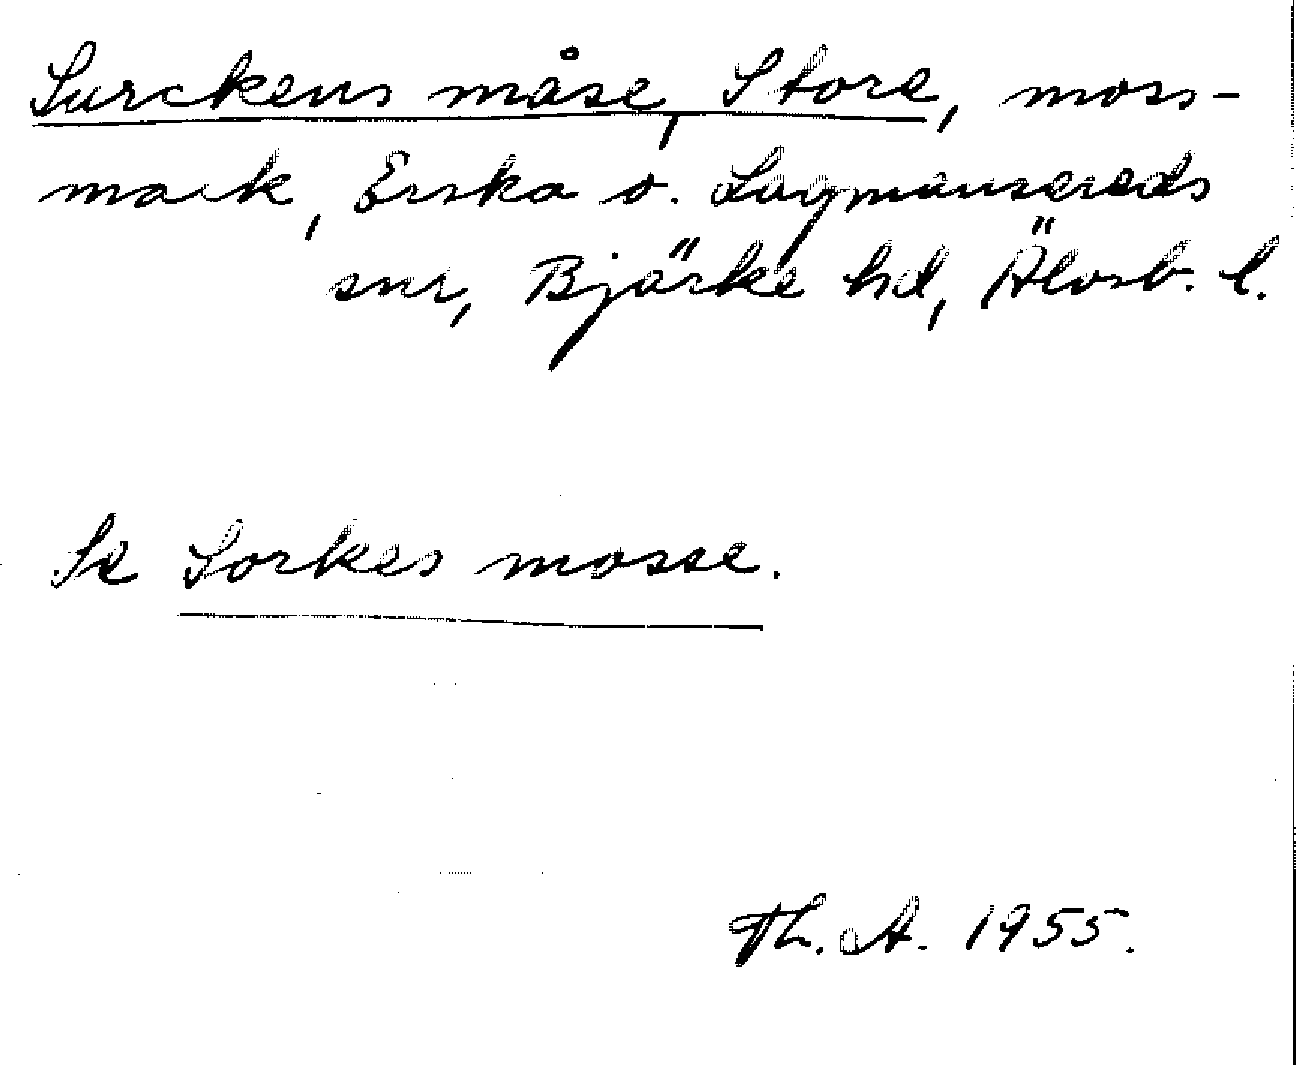 Surckens måse, Store, moss-
mark, Erska o. Lagmansereds
snr, Bjärke hd, Älvsb. l.
Se Sorkes mosse.
Th. A. 1955.